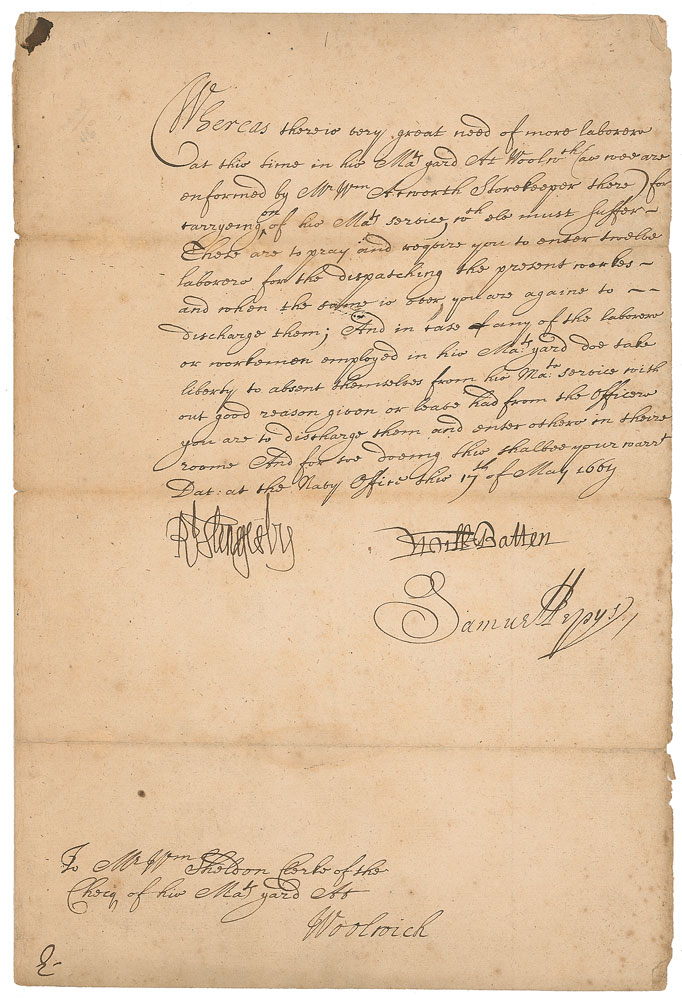 Whereas there is very great need of more laborers
at this time in his Maty yard At Woolwth (as wee are
enformed by Mr Wm Acworth Storekeeper there) for
carryeing on of his Mats service, wch els must suffer ~
These are to pray and require you to enter twelve
laborers for the dispatching the present workes ~
and when the same is over, you are againe to ~ ~
discharge them; And in case any of the laborers
or workemen employed in his Mats yard doe take
liberty to absent themselves from his Mats: service with
out good reason given or leave had from the Officers
you are to discharge them and enter others in theire
roome And for soe doeing this shalbee your warrt
Dat: at the Navy Office this 17th of May 1661
R Slingesby
Will Batten
Samuel Pepys
To Mr Wm Sheldon Clerke of the
Cheq of his Mats yard At
Woolwich